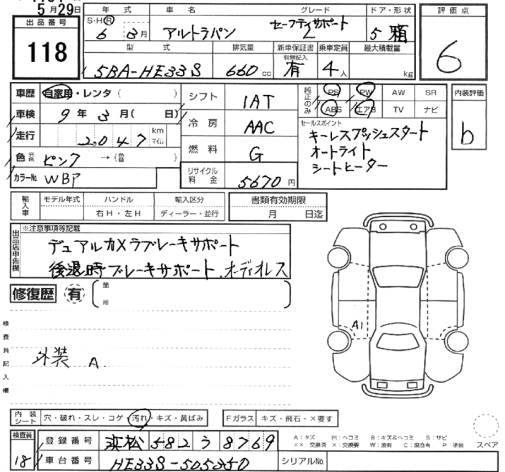 5月29日
出品番号
118
年式 車名 グレード ドア・形状
S・H・R 6年3月 アルトラパン セーフティサポート L 5 箱
型式 排気量 新車保証書 乗車定員 最大積載量
5BA-HE33S 660cc 有無記入 有 4人 kg
評価点
6
内装評価
b
車歴 自家用・レンタ( )
車検 9年3月( 日)
走行 2047 km マイル
色 元色 ピンク →(替色 )
カラーNo. WBP
シフト 1AT
冷房 AAC
燃料 G
リサイクル料金 5670円
純正のみ PS PW AW SR
ABS エアB TV ナビ
セールスポイント
キーレスプッシュスタート
オートライト
シートヒーター
輸入車 モデル年式 ハンドル 輸入区分
右H・左H ディーラー・並行
書類有効期限
月 日迄
出品店申告欄
※注意事項等記載
デュアルカメラブレーキサポート
後退時ブレーキサポート、オーディオレス
修復歴 有 箇所
検査員記入欄
外装 A
A1
内装シート 穴・破れ・スレ・コゲ・汚れ・キズ・黄ばみ
Fガラス キズ・飛石・X要す
A:キズ P:ヘコミ B:キズ&ヘコミ S:サビ
スペア
検査員 18
登録番号 浜松 582 う 8769
車台番号 HE33S-505350
シリアルNo.